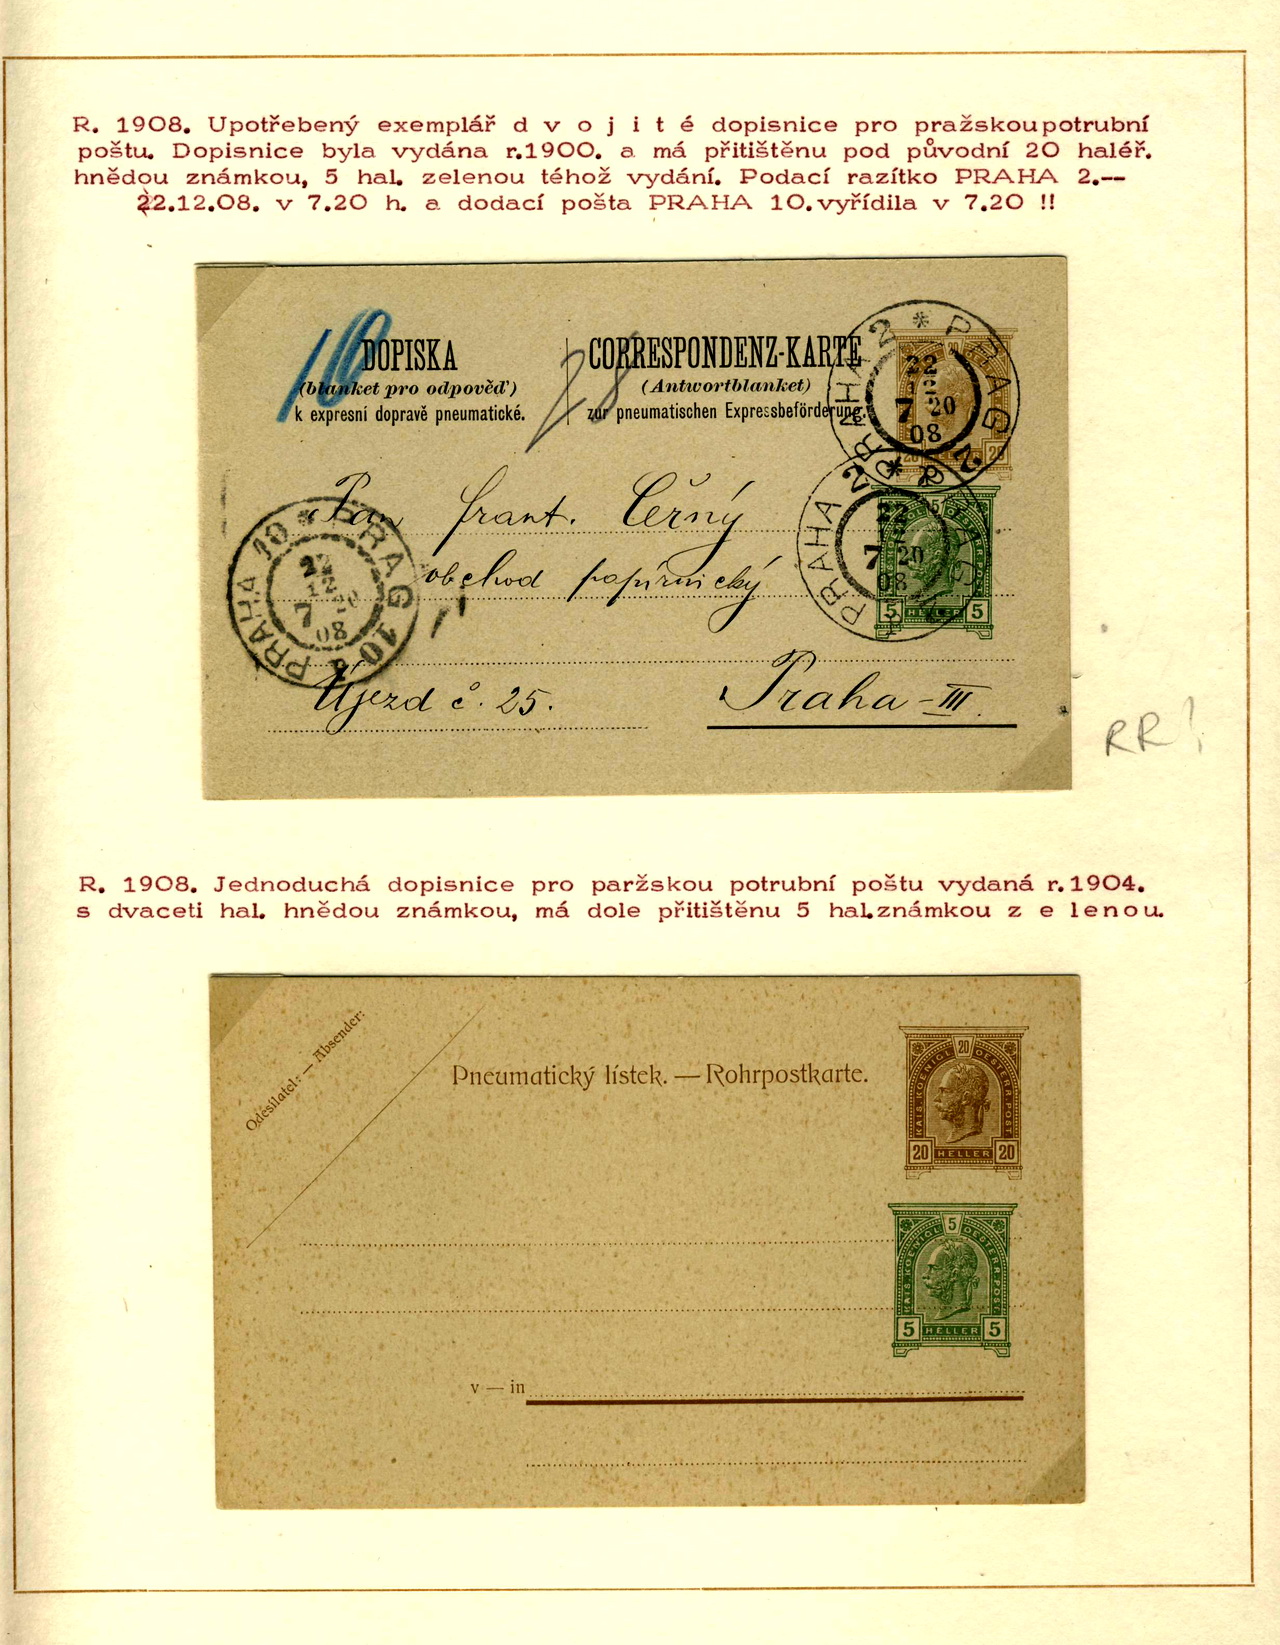 R. 1908. Upotřebený exemplář d v o j i t é dopisnice pro pražskoupotrubní
poštu. Dopisnice byla vydána r.1900. a má přitištěnu pod původní 20 haléř.
hnědou známkou, 5 hal. zelenou téhož vydání. Podací razítko PRAHA 2.--
22.12.08. v 7.20 h. a dodací pošta PRAHA 10.vyřídila v 7.20 !!
10
DOPISKA
(blanket pro odpověď)
k expresní dopravě pneumatické.
28
CORRESPONDENZ-KARTE
(Antwortblanket)
zur pneumatischen Expressbeförderung.
PRAHA 2 * PRAG 2
22
12
7 20
08
20
20 HELLER 20
PRAHA 2 * PRAG 2
22
12
7 20
08
5
5 HELLER 5
PRAHA 10 * PRAG 10
22
12
7 20
08
Pan frant. Černý
obchod papírnický
Újezd č. 25.
Praha-III.
RR!
R. 1908. Jednoduchá dopisnice pro paržskou potrubní poštu vydaná r.1904.
s dvaceti hal. hnědou známkou, má dole přitištěnu 5 hal.známkou z e lenou.
Odesílatel: — Absender:
Pneumatický lístek. — Rohrpostkarte.
KAIS. KOENIGL. 20 OESTERR. POST
20 HELLER 20
KAIS. KOENIGL. 5 OESTERR. POST
5 HELLER 5
v — in